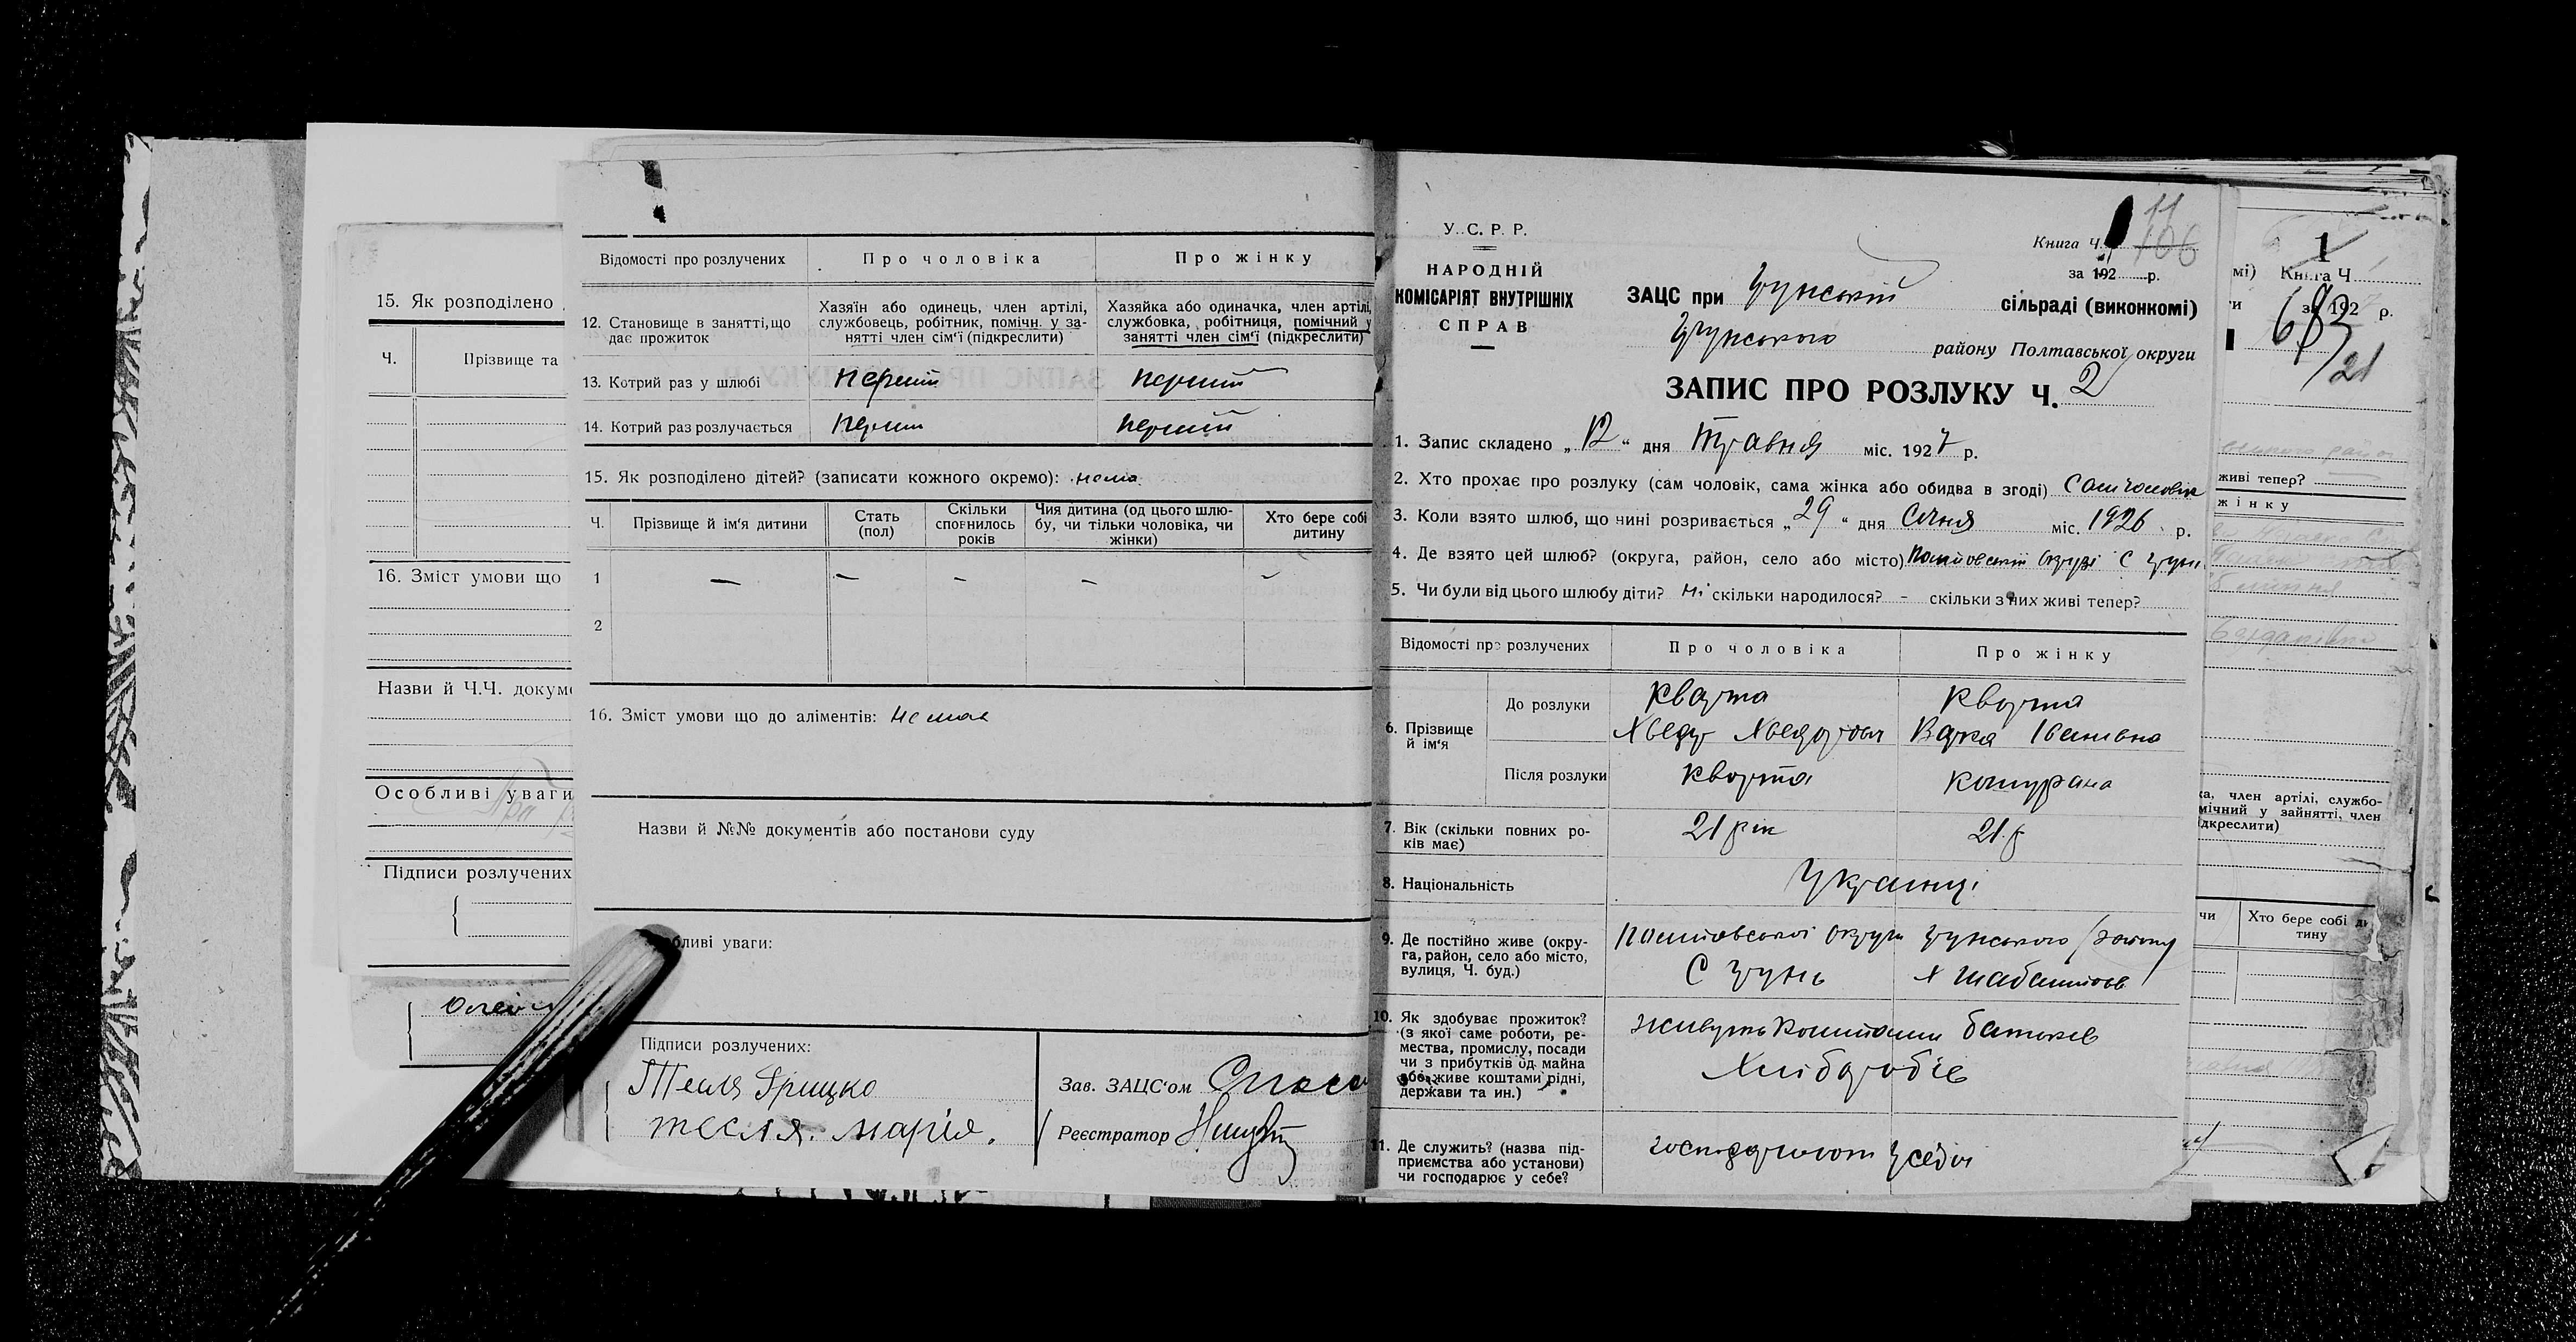 15. Як розподілено
Ч.
Прізвище та
16. Зміст умови що
Назви й Ч.Ч. докум
Особливі уваги
Підписи розлучених
Відомості про розлучених
Про чоловіка
Про жінку
12. Становище в занятті, що
дає прожиток
Хазяїн або одинець, член артілі,
службовець, робітник, помічн. у за-
нятті член сім'ї (підкреслити)
Хазяйка або одиначка, член артілі,
службовка, робітниця, помічний у
занятті член сім'ї (підкреслити)
13. Котрий раз у шлюбі
перший
перший
14. Котрий раз розлучається
перший
15. Як розподілено дітей? (записати кожного окремо): нема
Ч.
Прізвище й ім'я дитини
Стать
(пол)
Скільки
сповнилось
років
Чия дитина (од цього шлю-
бу, чи тільки чоловіка, чи
жінки)
Хто бере собі
дитину
1 — — — — —
2
16. Зміст умови що до аліментів: немає
Назви й №№ документів або постанови суду
бливі уваги:
Підписи розлучених:
Тесля Грицко
тесля. марія.
Зав. ЗАЦС'ом
Реєстратор
У.С.Р.Р.
НАРОДНІЙ
КОМІСАРІЯТ ВНУТРІШНІХ
СПРАВ
Книга Ч. 11
106
за 192 р.
ЗАЦС при Грунській сільраді (виконкомі)
Грунського району Полтавської округи
ЗАПИС ПРО РОЗЛУКУ Ч. 2
1. Запис складено „12“ дня Травня міс. 1927 р.
2. Хто прохає про розлуку (сам чоловік, сама жінка або обидва в згоді) Сам чоловік
3. Коли взято шлюб, що нині розривається „29“ дня Січня міс. 1926 р.
4. Де взято цей шлюб? (округа, район, село або місто) Полтовській Округі С Грунь
5. Чи були від цього шлюбу діти? Ні скільки народилося? – скільки з них живі тепер?
Відомості про розлучених
Про чоловіка
Про жінку
6. Прізвище
й ім'я
До розлуки
Кварта
Хведір Хведорович
Кварта
Варка Іванівна
Після розлуки
Кварта
7. Вік (скільки повних ро-
ків має)
21 рік
21 р
8. Національність
Українці
9. Де постійно живе (окру-
га, район, село або місто,
вулиця, Ч. буд.)
Полтавської Округи Грунського району
С Грунь
10. Як здобуває прожиток?
(з якої саме роботи, ре-
мества, промислу, посади
чи з прибутків од майна
або живе коштами рідні,
держави та ин.)
живуть Коштами батьків
Хліборобів
11. Де служить? (назва під-
приємства або установи)
чи господарює у себе?
господарюют у себе
мі) Книга Ч
1
за 192 р.
683
/21
живі тепер?
жінку
ка, член артілі, службо-
мічний у зайнятті, член
ідкреслити)
чи
Хто бере собі ди
тину